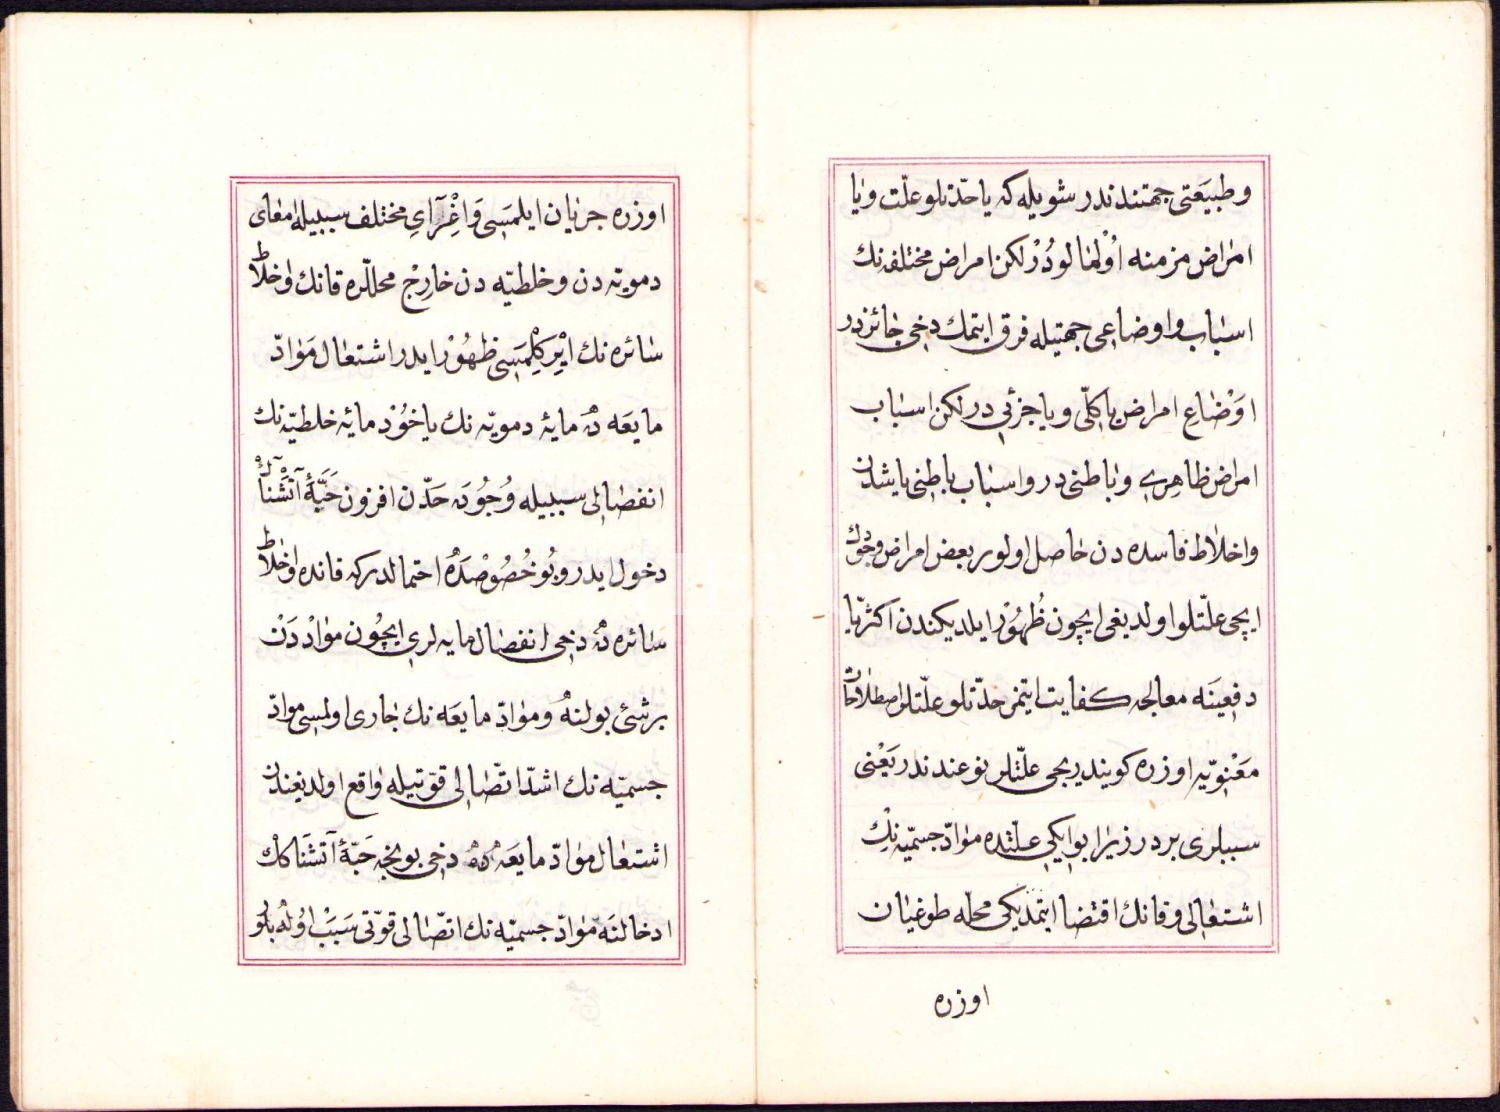 وطبيعتى جهتندندر شويله كه يا حدّتلو علّت ويا
امراض مزمنه اۏلمالودر لكن امراض مختلفه نك
اسباب واوضاعى جهتيله فرق ايتمك دخى جائزدر
اوضاع امراض يا كلّى ويا جزئى در لكن اسباب
امراض ظاهرى وباطنى در واسباب باطنى ياشدن
واخلاط فاسده دن حاصل اولور بعض امراض وجودك
ايچى علّتلو اولديغى ايچون ظهور ايلديكندن اكثريا
دفعينه معالجه كفايت ايتمز حدّتلو علّتلر اصطلاحات
معنويه اوزره كوينديريجى علّتلر نوعندندر يعنى
سببلرى بردر زيرا بو ايكى علّتده موادّ جسميّه نك
اشتعالى وقانك اقتضا ايتمديكى محلّه طوغيان
اوزره
اوزره جريان ايلمسى واغراى مختلف سببيله امعاى
دمويّه دن وخلطيّه دن خارج محللره قانك واخلاط
سائره نك ايركلمسى ظهور ايدر اشتعال موادّ
مايعه ده مايۀ دمويّه نك ياخود مايۀ خلطيّه نك
انفصالى سببيله وجوده حدّن افزون حبّۀ آتشناك
دخول ايدر وبو خصوصده احتمالدركه قانده واخلاط
سائره ده دخى انفصال مايه لرى ايچون موادّدن
برشئ بولنه وموادّ مايعه نك جارى اولمسى موادّ
جسميّه نك اشدّ اتّصالى قوّتيله واقع اولديغندن
اشتعال موادّ مايعه ده دخى بويجه حبّۀ آتشناكك
ادخالنه موادّ جسميّه نك اتّصالى قوّتى سبب اوله بلور